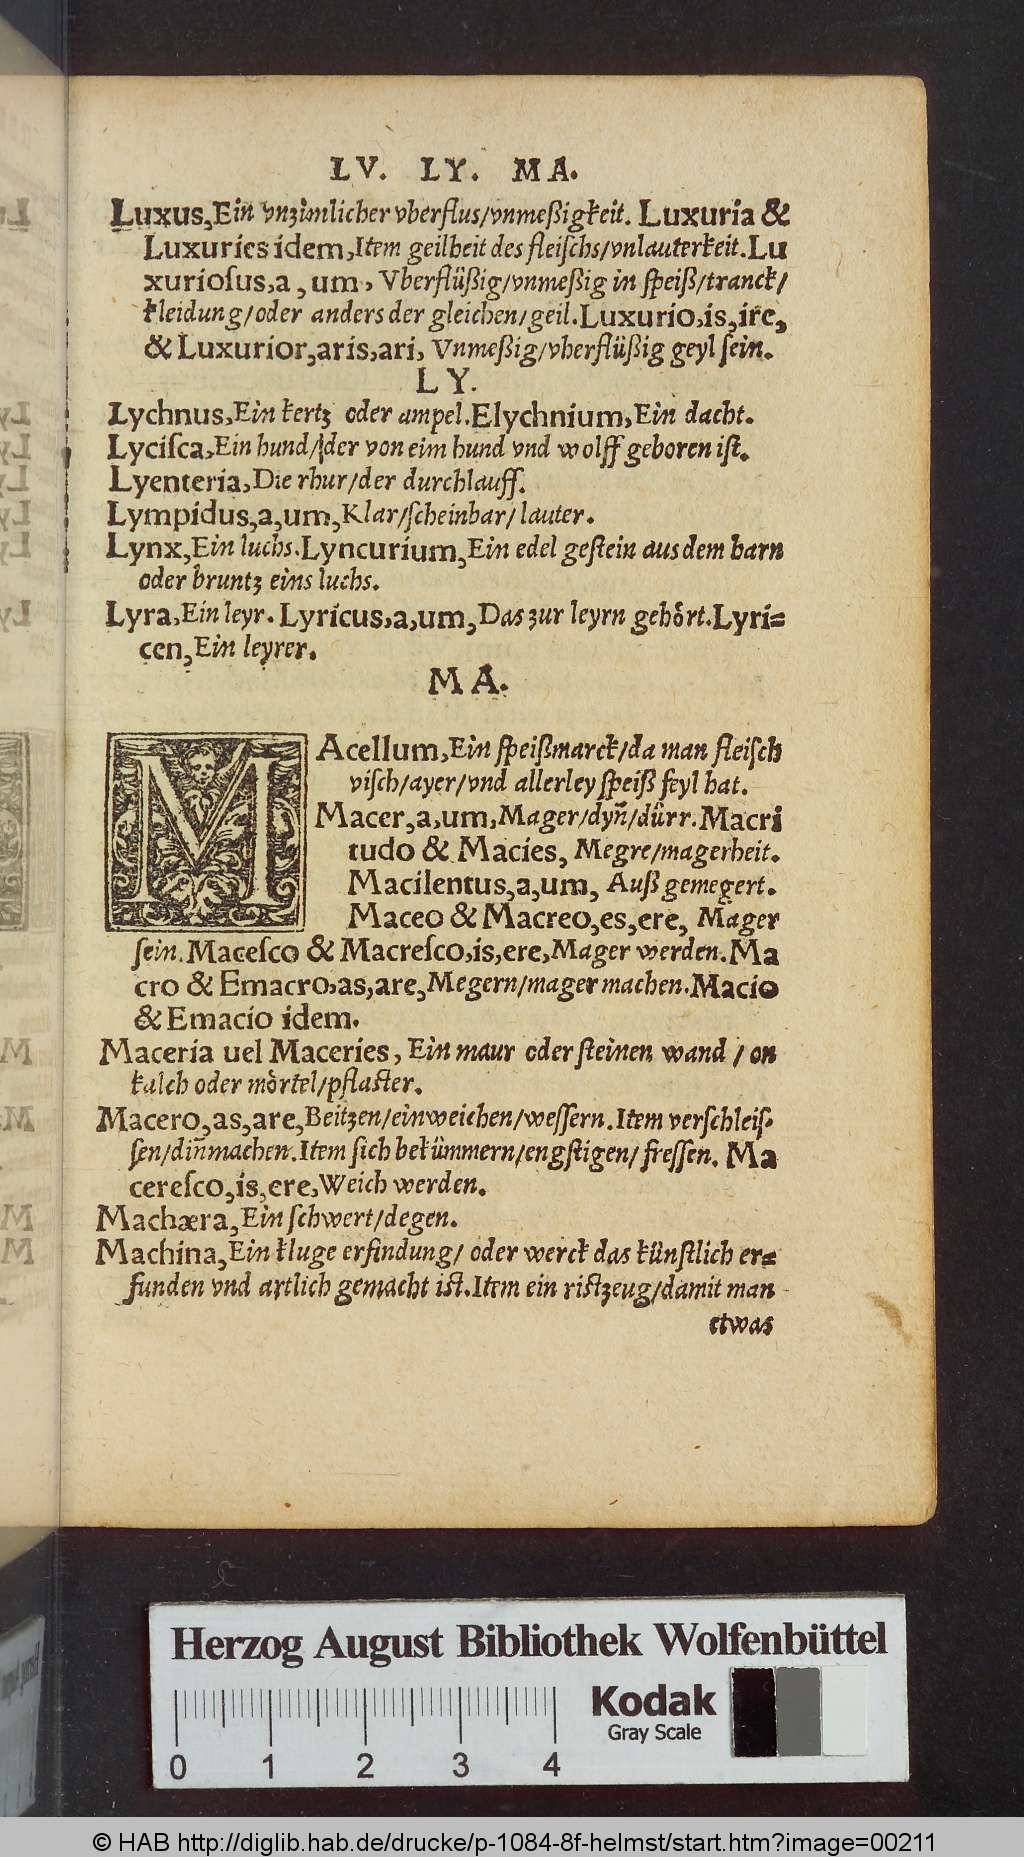 LV. LY. MA.
Luxus, Ein vnzimlicher vberflus/vnmeßigkeit. Luxuria &
Luxuries idem, Item geilheit des fleiſchs/vnlauterkeit. Lu
xurioſus, a, um, Vberflüßig/vnmeßig in ſpeiß/tranck/
kleidung/oder anders der gleichen/geil. Luxurio, is, ire,
& Luxurior, aris, ari, Vnmeßig/vberflüßig geyl ſein.
LY.
Lychnus, Ein kertz oder ampel. Elychnium, Ein dacht.
Lyciſca, Ein hund/der von eim hund vnd wolff geboren iſt.
Lyenteria, Die rhur/der durchlauff.
Lympidus, a, um, Klar/ſcheinbar/lauter.
Lynx, Ein luchs. Lyncurium, Ein edel geſtein aus dem harn
oder bruntz eins luchs.
Lyra, Ein leyr. Lyricus, a, um, Das zur leyrn gehört. Lyri=
cen, Ein leyrer.
MA.
MAcellum, Ein ſpeißmarck/da man fleiſch
viſch/ayer/vnd allerley ſpeiß feyl hat.
Macer, a, um, Mager/dyñ/dürr. Macri
tudo & Macies, Megre/magerheit.
Macilentus, a, um, Auß gemegert.
Maceo & Macreo, es, ere, Mager
ſein. Maceſco & Macreſco, is, ere, Mager werden. Ma
cro & Emacro, as, are, Megern/mager machen. Macio
& Emacio idem.
Maceria uel Maceries, Ein maur oder ſteinen wand/on
kalch oder mörtel/pflaſter.
Macero, as, are, Beitzen/einweichen/weſſern. Item verſchleiſ=
ſen/diñmachen. Item ſich bekümmern/engſtigen/freſſen. Ma
cereſco, is, ere, Weich werden.
Machæra, Ein ſchwert/degen.
Machina, Ein kluge erfindung/oder werck das künſtlich er=
funden vnd artlich gemacht iſt. Item ein riſtzeug/damit man
etwas
Herzog August Bibliothek Wolfenbüttel
Kodak
Gray Scale
0 1 2 3 4
© HAB http://diglib.hab.de/drucke/p-1084-8f-helmst/start.htm?image=00211